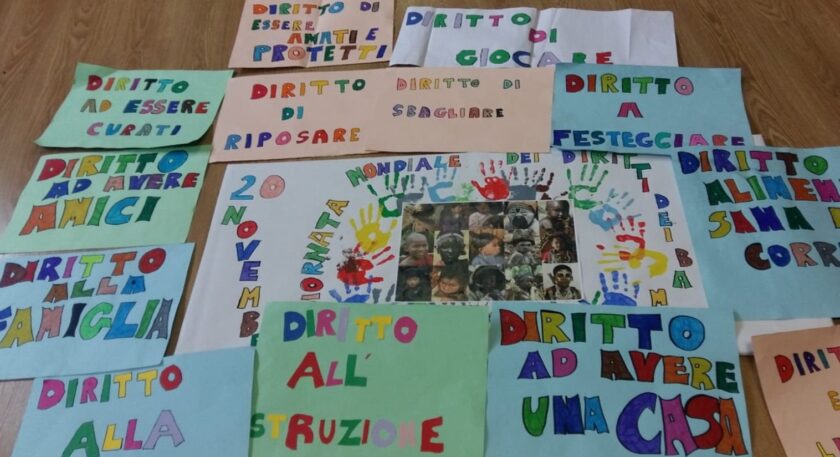 DIRITTO DI
ESSERE
AMATI E
PROTETTI
DIRITTO
DI
GIOCARE
DIRITTO
AD ESSERE
CURATI
DIRITTO
DI
RIPOSARE
DIRITTO DI
SBAGLIARE
DIRITTO
A
FESTEGGIARE
DIRITTO
AD AVERE
AMICI
20
NOVEMB
GIORNATA MONDIALE DEI DIRITTI DEI BAM
DIRITTO
ALIMEN
SANA
CORR
DIRITTO
ALLA
FAMIGLIA
DIRITTO
ALL'
ISTRUZIONE
DIRITTO
AD AVERE
UNA CASA
DIRITTO
ALLA
DIRI